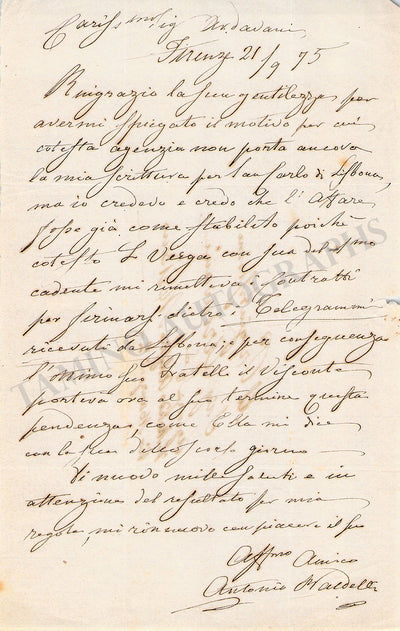 Cariss.mo Sig. Ardavani,
Firenze 21/9 75
Ringrazio la sua gentilezza per
avermi spiegato il motivo per cui
cotesta agenzia non porta ancora
la mia scrittura per San Carlo di Lisbona,
ma io credevo e credo che l'affare
fosse già come stabilito poichè
cotesto S. Verga con sua del
cadente mi rimetteva i Contratti
per firmarsi dietro i Telegrammi
ricevuti da Lisbona; e per conseguenza
l'Animo suo Fratello il Visconte
portiva ora al suo termine questa
pendenza, come Ella mi dice
con la sua dello scorso giorno
Di nuovo mille saluti e in
attenzione del resultato per mia
regola, mi rinnuovo con piacere il suo
Affmo Amico
Antonio
TAMINO AUTOGRAPHS